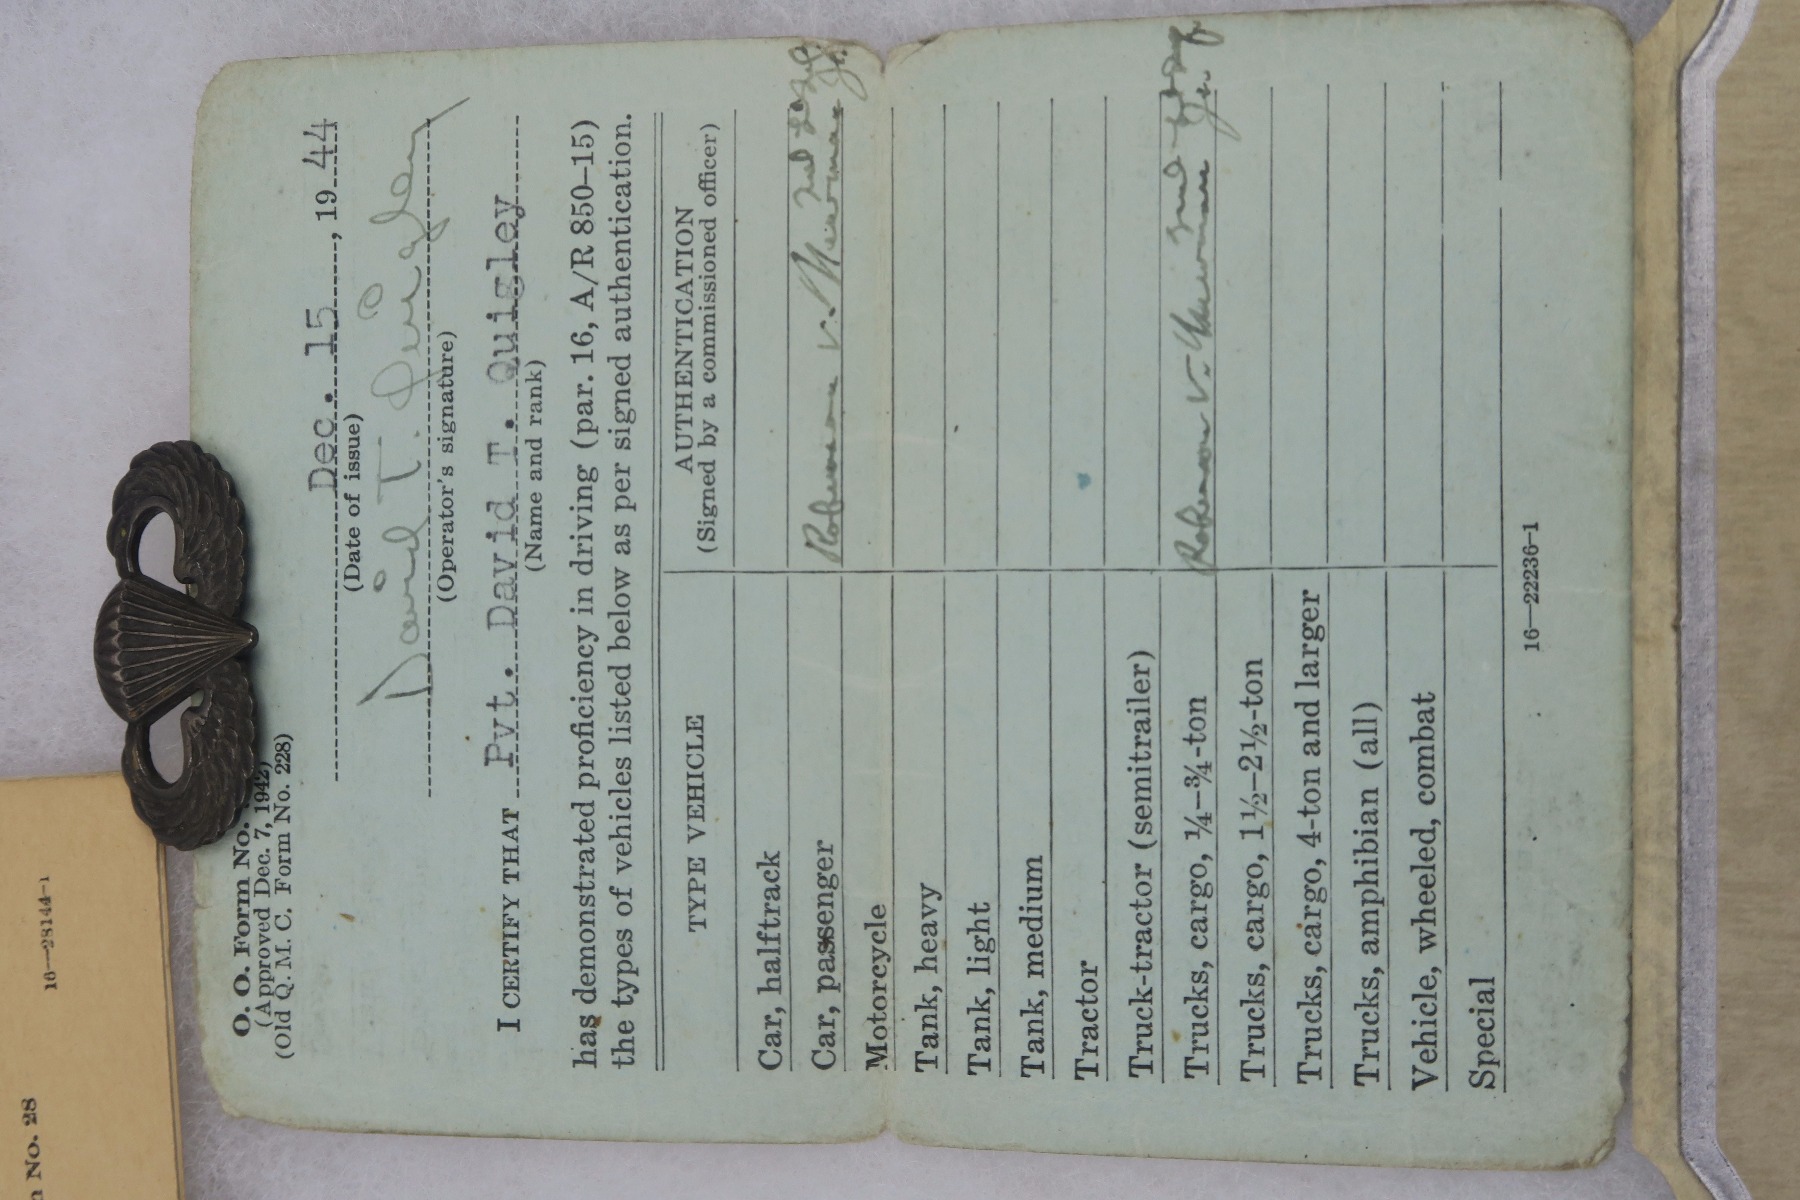 O. O. Form No.
(Approved Dec. 7, 1942)
(Old Q. M. C. Form No. 228)
Dec. 15, 1944
(Date of issue)
David T. Quigley
(Operator's signature)
I CERTIFY THAT Pvt. David T. Quigley
(Name and rank)
has demonstrated proficiency in driving (par. 16, A/R 850–15)
the types of vehicles listed below as per signed authentication.
TYPE VEHICLE
AUTHENTICATION
(Signed by a commissioned officer)
Car, halftrack
Car, passenger V.
Motorcycle
Tank, heavy
Tank, light
Tank, medium
Tractor
Truck-tractor (semitrailer)
Trucks, cargo, ¼–¾-ton V. 2nd
Trucks, cargo, 1½–2½-ton
Trucks, cargo, 4-ton and larger
Trucks, amphibian (all)
Vehicle, wheeled, combat
Special
16—22236-1
No. 28
16—28144-1